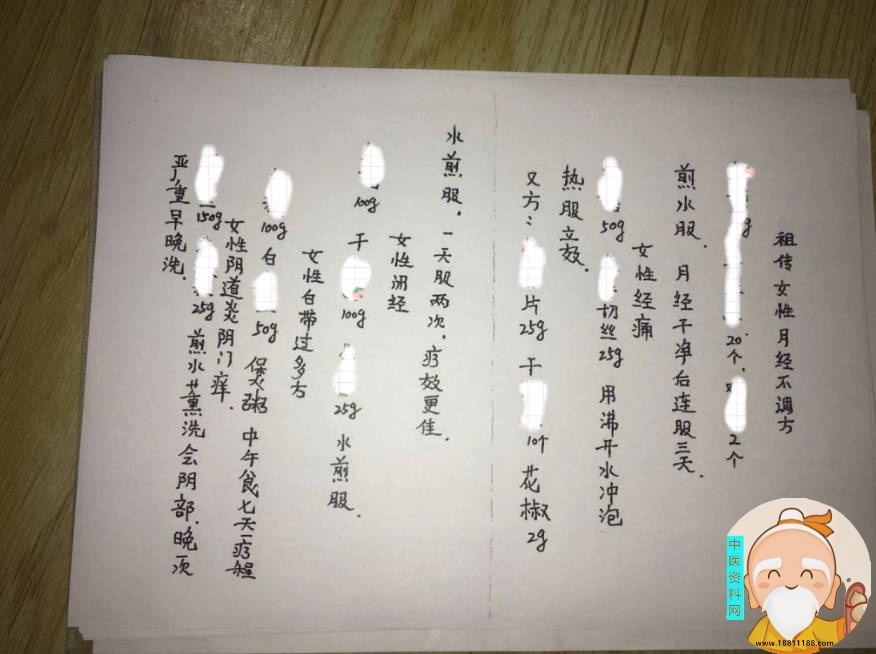 祖传女性月经不调方
g 20个, 2个
煎水服. 月经干净后连服三天.
女性经痛
50g 切丝25g 用沸开水冲泡
热服立效.
又方: 片25g 干 10个 花椒2g
水煎服. 一天服两次. 疗效更佳.
女性闭经
100g 干 100g 25g 水煎服.
女性白带过多方
100g 白 50g 煲粥 中午食七天一疗程
女性阴道炎 阴门痒.
150g 25g 煎水熏洗会阴部. 晚一次
严重早晚洗.
中医资料网
www.18811188.com